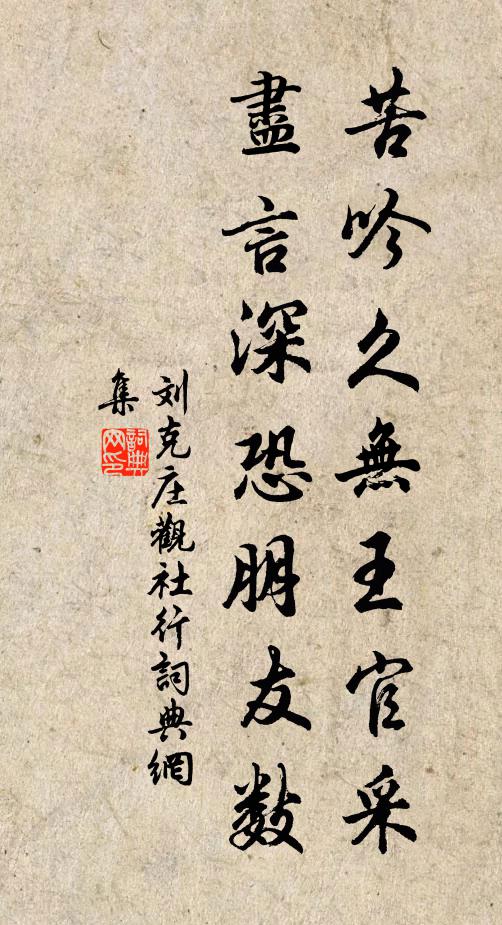 苦吟久無王官采
盡言深恐朋友數
刘克庄觀社行詞典網
集
詞典網印